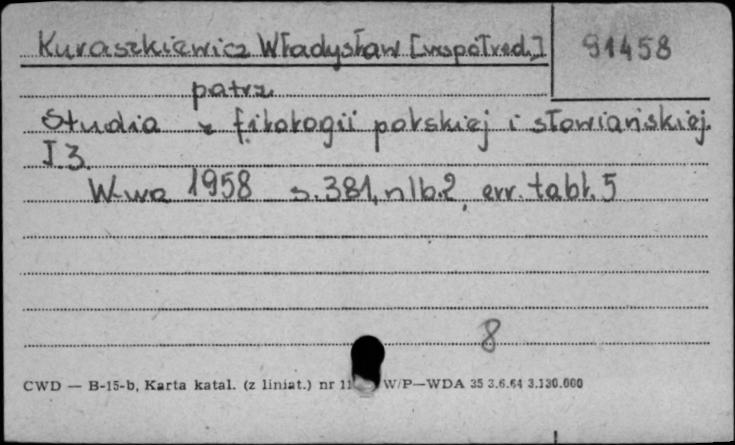 Kuraszkiewicz Władysław [współred.] 91458
patrz
Studia z filologii polskiej i słowiańskiej.
I 3.
W-wa 1958 s. 381, nlb. 2, err. tabl. 5
8
CWD — B-15-b, Karta katal. (z liniat.) nr 11 W/P—WDA 35 3.6.64 3.130.000